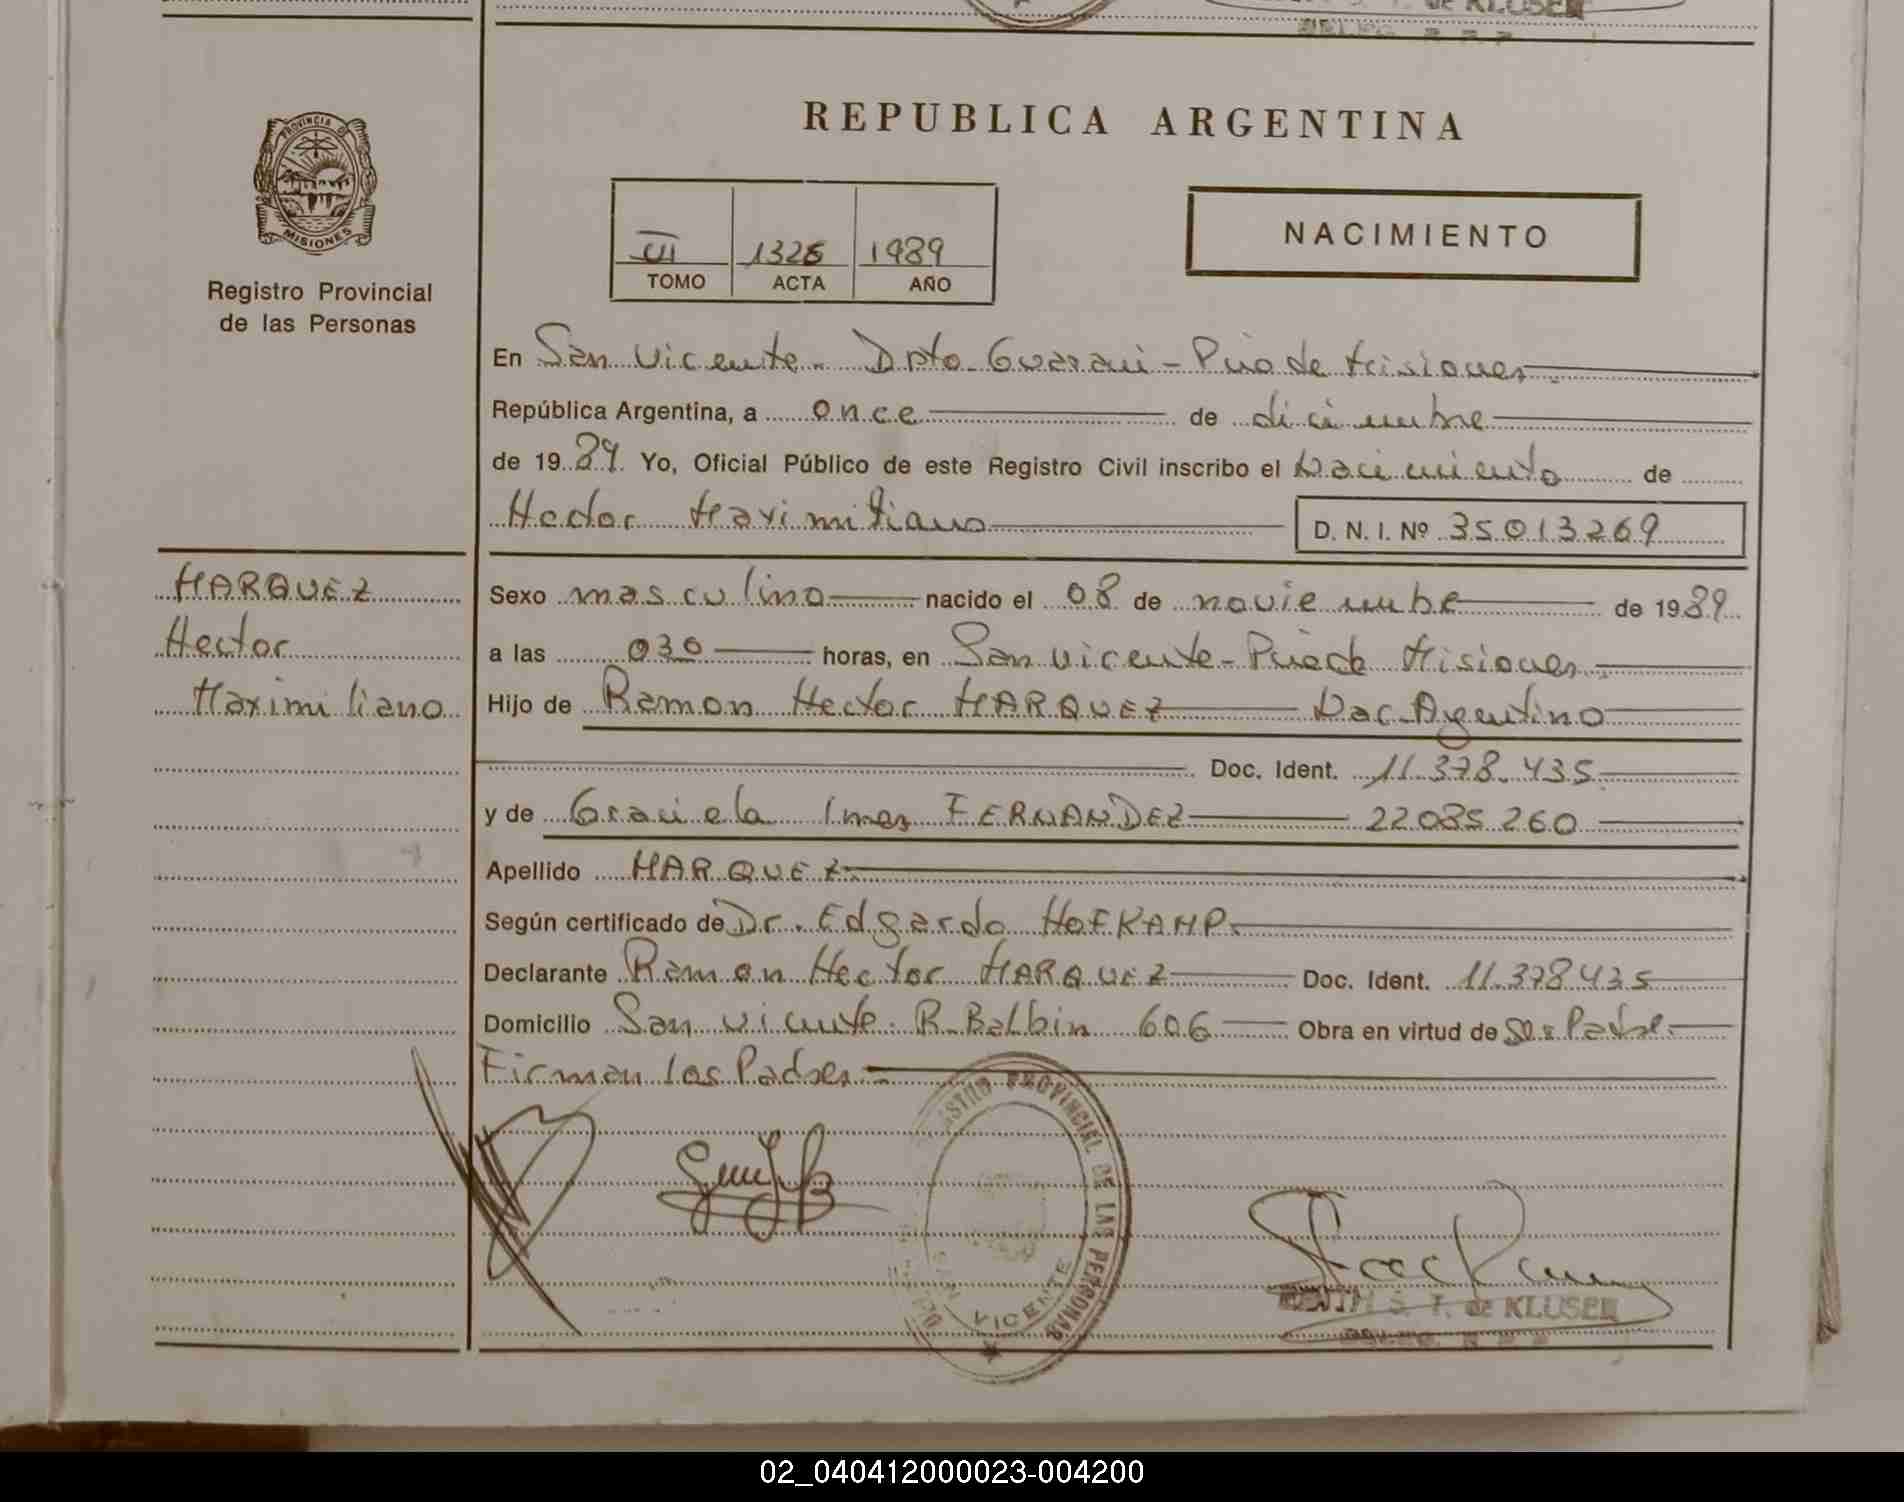 de KLUSEN
REPUBLICA ARGENTINA
PROVINCIA D
MISIONES
Registro Provincial
de las Personas
NACIMIENTO
VI 1326 1989
TOMO ACTA AÑO
En San Vicente - Dpto Guarani - Pcia de Misiones
República Argentina, a once de diciembre
de 1989 Yo, Oficial Público de este Registro Civil inscribo el Nacimiento de
Hector Maximiliano D. N. I. Nº 35013269
MARQUEZ
Hector
Maximiliano
Sexo masculino nacido el 08 de noviembre de 1989
a las 030 horas, en San Vicente - Pcia de Misiones
Hijo de Ramon Hector MARQUEZ Nac. Argentino
Doc. Ident. 11.378.435
y de Graciela Ines FERNANDEZ 22085260
Apellido MARQUEZ
Según certificado de Dr. Edgardo HOFKAMP
Declarante Ramon Hector MARQUEZ Doc. Ident. 11.378435
Domicilio San Vicente R. Balbin 606 Obra en virtud de Ser Padre
Firman los Padres
REGISTRO PROVINCIAL DE LAS PERSONAS
SAN VICENTE
S. T. de KLUSEN
02_040412000023-004200